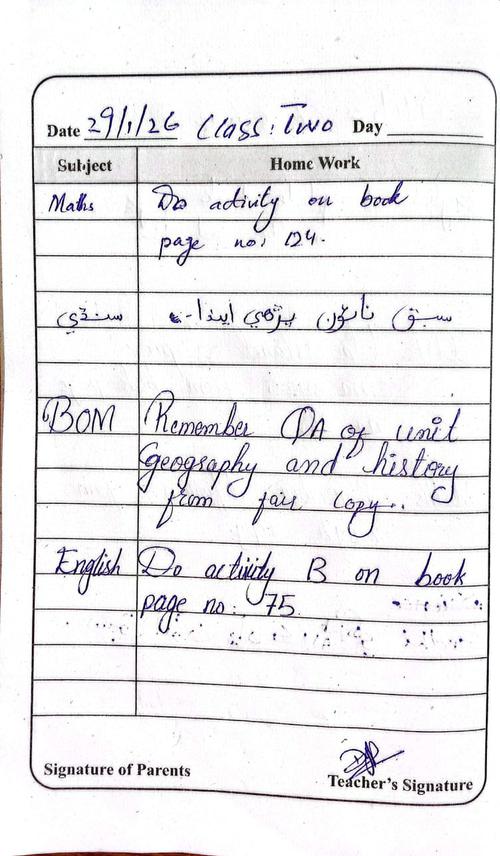 Date 29/1/26 Class: Two Day
Subject Home Work
Maths Do activity on book
page no: 124.
سنڌي سبق نائون پڙهي ايندا-
BOM Remember QA of unit
Geography and history
from fair copy..
English Do activity B on book
page no: 75
Signature of Parents Teacher's Signature